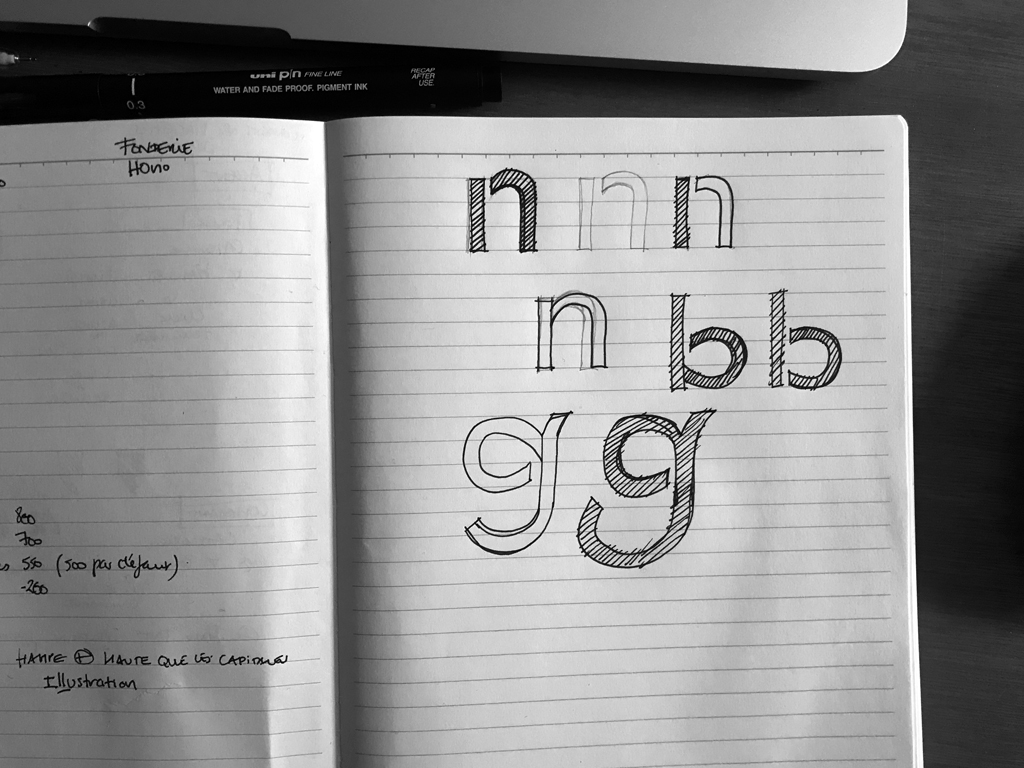 uni pin FINE LINE
WATER AND FADE PROOF. PIGMENT INK
RECAP
AFTER
USE.
0.3
FONDERIE
n n n
n b b
g g
800
700
550 (500 par défaut)
-250
HAMPE ⊕ HAUTE QUE LES CAPITALES
Illustration